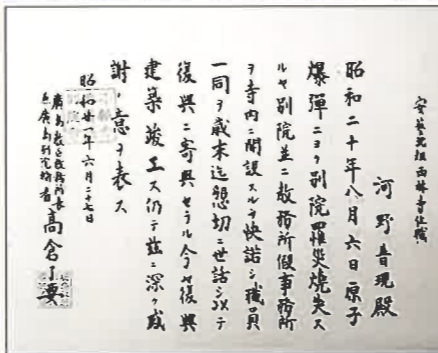 安藝北組西林寺住職
河野音現殿
昭和二十年八月六日原子
爆彈ニヨリ別院罹災燒失ス
ルヤ別院並ニ教務所假事務所
ヲ寺内ニ開設スルヲ快諾シ職員
一同ヲ歳末迄懇切ニ世話シ以テ
復興ニ寄與セラル今ヤ復興
建築竣工ス仍テ茲ニ深ク感
謝ノ意ヲ表ス
昭和廿一年六月二十七日
廣島教区教務所長
兼廣島別院輪番
高倉了要